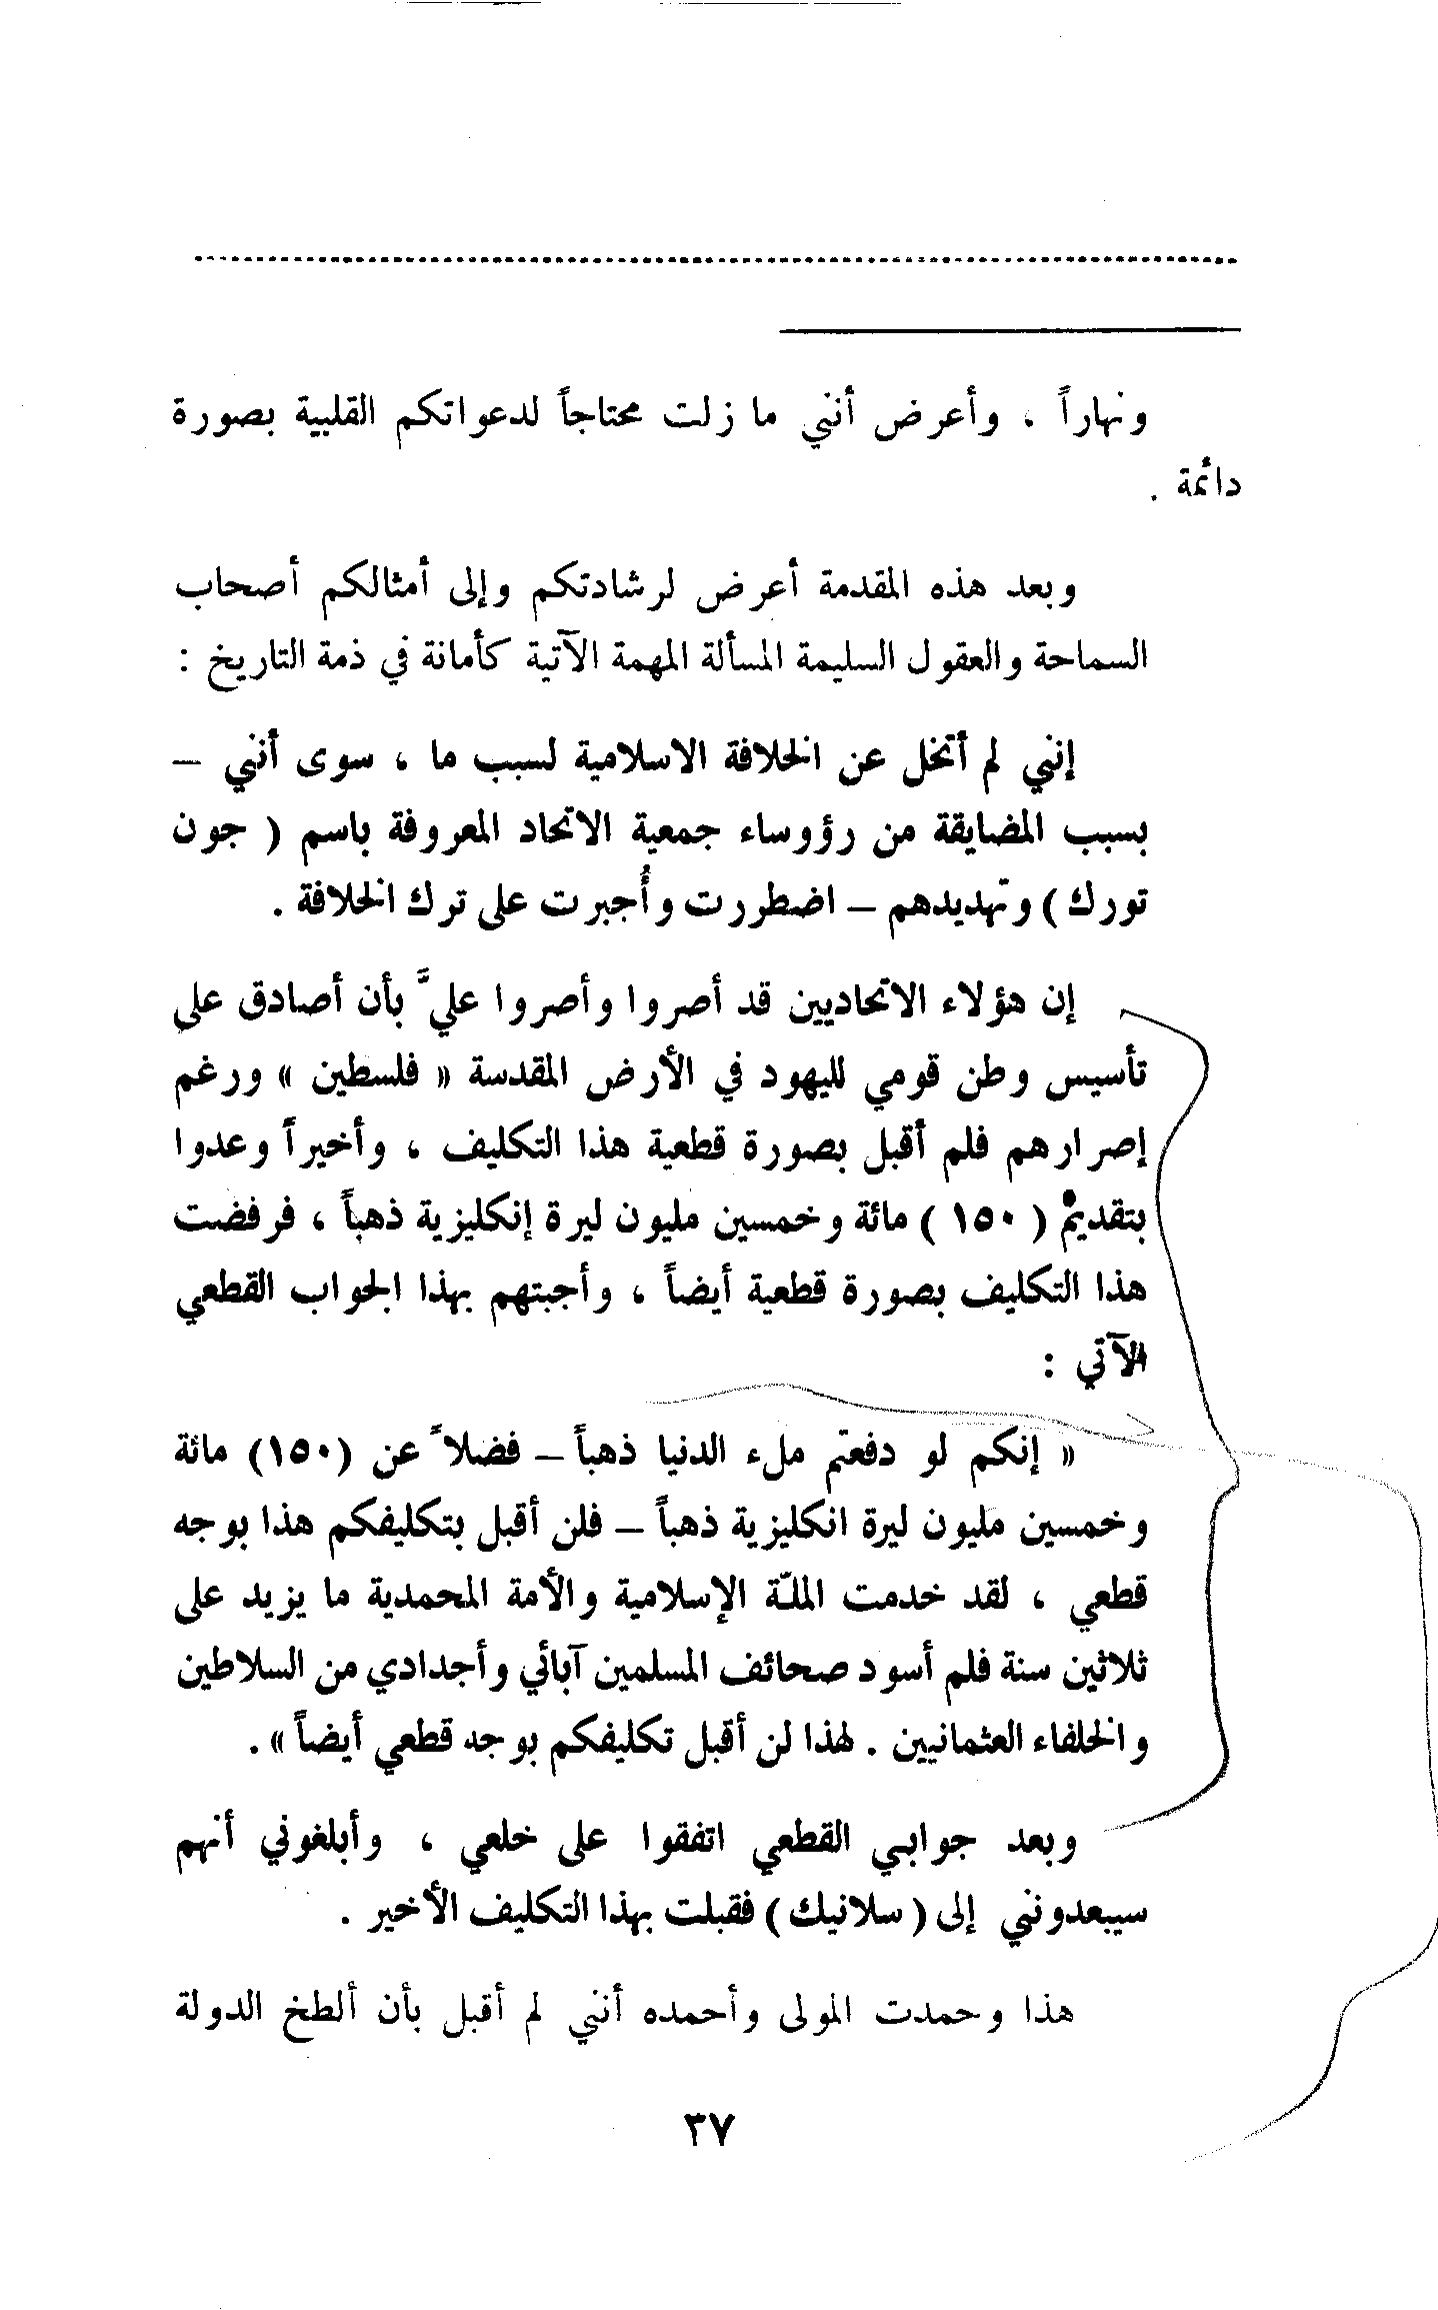 ونهاراً ، وأعرض أنني ما زلت محتاجاً لدعواتكم القلبية بصورة
دائمة .
وبعد هذه المقدمة أعرض لرشادتكم وإلى أمثالكم أصحاب
السماحة والعقول السليمة المسألة المهمة الآتية كأمانة في ذمة التاريخ :
إنني لم أتخل عن الخلافة الاسلامية لسبب ما ، سوى أنني –
بسبب المضايقة من رؤوساء جمعية الاتحاد المعروفة باسم ( جون
تورك ) وتهديدهم – اضطررت وأُجبرت على ترك الخلافة .
إن هؤلاء الاتحاديين قد أصروا وأصروا عليَّ بأن أصادق على
تأسيس وطن قومي لليهود في الأرض المقدسة « فلسطين » ورغم
إصرارهم فلم أقبل بصورة قطعية هذا التكليف ، وأخيراً وعدوا
بتقديم ( ١٥٠ ) مائة وخمسين مليون ليرة إنكليزية ذهباً ، فرفضت
هذا التكليف بصورة قطعية أيضاً ، وأجبتهم بهذا الجواب القطعي
الآتي :
« إنكم لو دفعتم ملء الدنيا ذهباً – فضلاً عن (١٥٠) مائة
وخمسين مليون ليرة انكليزية ذهباً – فلن أقبل بتكليفكم هذا بوجه
قطعي ، لقد خدمت الملّة الإسلامية والأمة المحمدية ما يزيد على
ثلاثين سنة فلم أسود صحائف المسلمين آبائي وأجدادي من السلاطين
والخلفاء العثمانيين . لهذا لن أقبل تكليفكم بوجه قطعي أيضاً » .
وبعد جوابي القطعي اتفقوا على خلعي ، وأبلغوني أنهم
سيبعدونني إلى ( سلانيك ) فقبلت بهذا التكليف الأخير .
هذا وحمدت المولى وأحمده أنني لم أقبل بأن ألطخ الدولة
٣٧